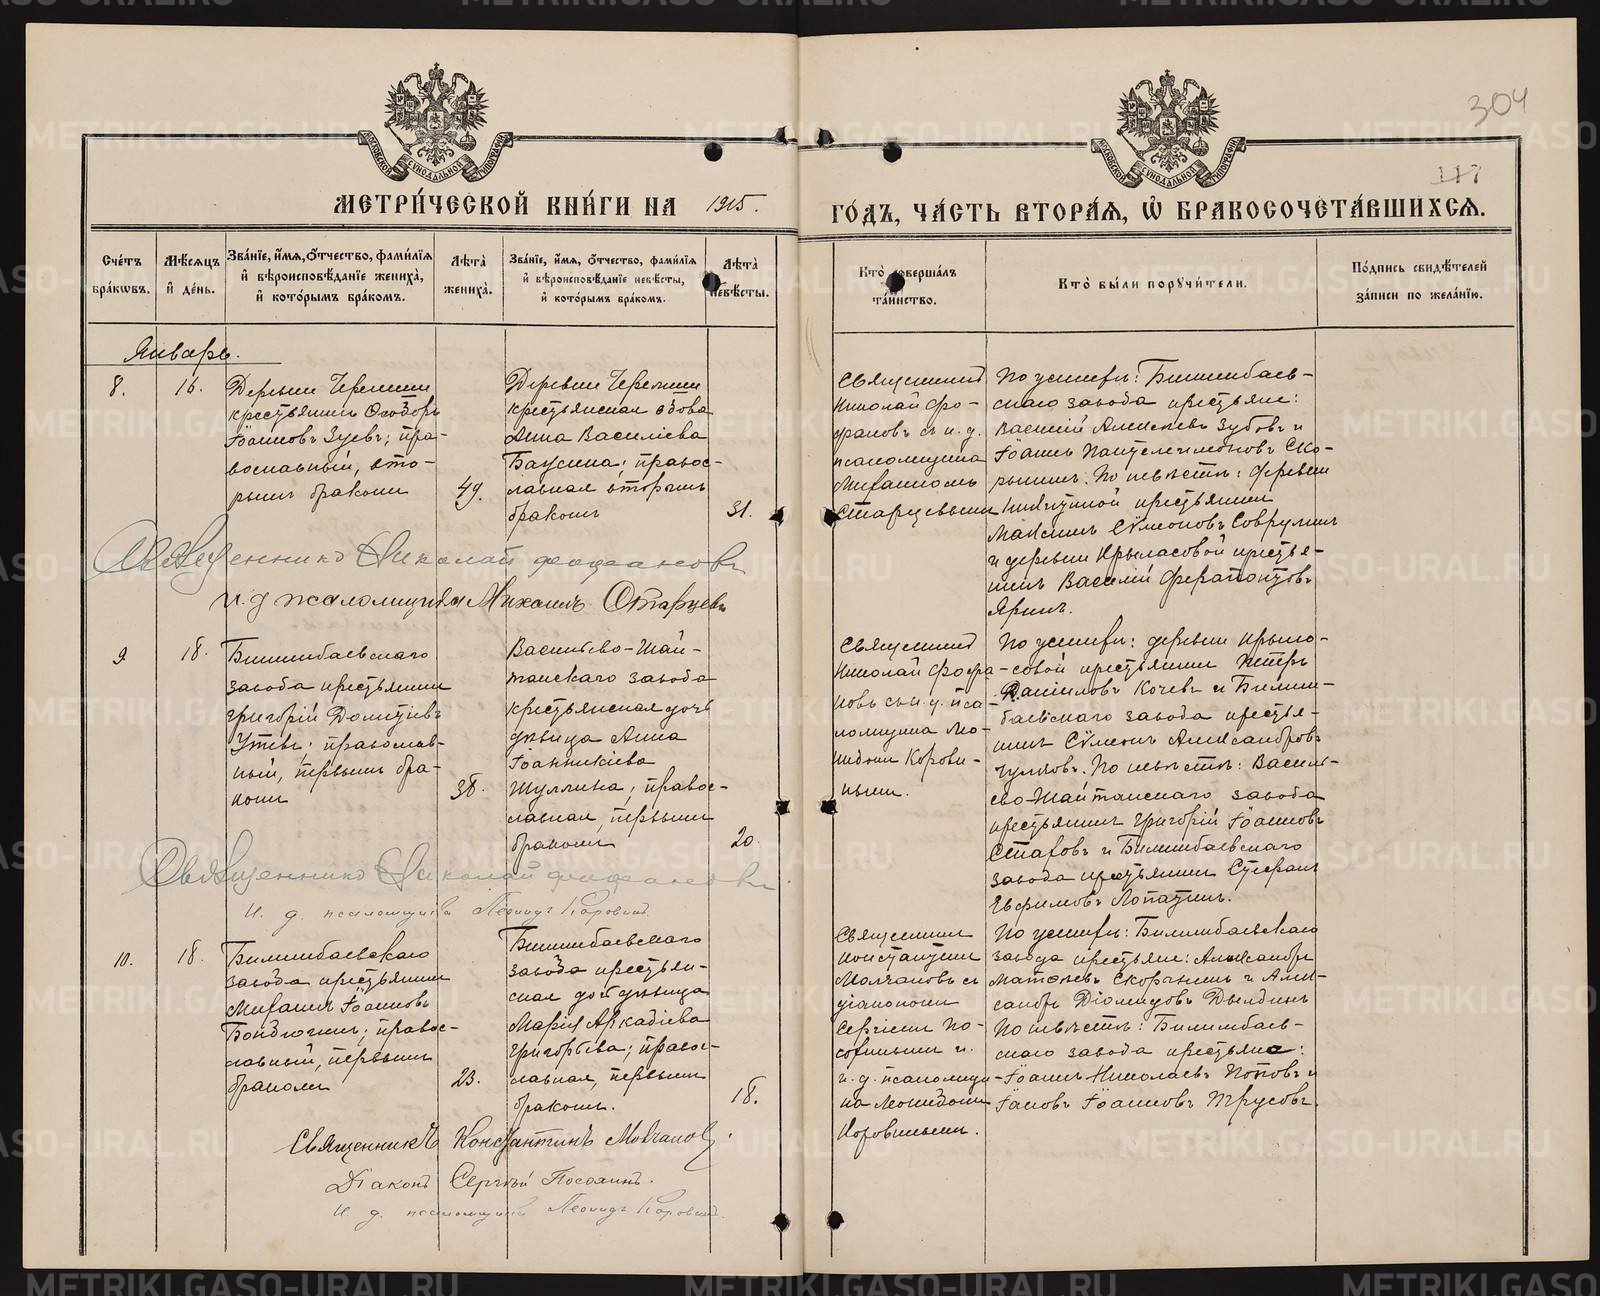 304
117
МЕТРИ́ЧЕСКОЙ КНИ́ГИ НА 1915. ГО́ДЪ, ЧА́СТЬ ВТОРА́Я, Ѽ БРАКОСОЧЕТА́ВШИХСЯ.
Сче́тъ бра́кѡвъ.
Мѣ́сяцъ и҆ де́нь.
Зва́нїе, и҆́мя, ѻ҆́тчество, фами́лїя
и҆ вѣроисповѣ́данїе жениха̀,
и҆ кото́рымъ бра́комъ.
Лѣ́та̀ жениха̀.
Зва́нїе, и҆́мя, ѻ҆́тчество, фами́лїя
и҆ вѣроисповѣ́данїе невѣ́сты,
и҆ кото́рымъ бра́комъ.
Лѣ́та̀ невѣ́сты.
Кто̀ соверша́лъ
та́инство.
Кто̀ бы́ли порꙋчи́тели.
По́дпись свидѣ́телей
за́писи по жела́нїю.
Январь.
8.
16.
Деревни Черемши
крестьянинъ Ѳеодоръ
Іоанновъ Зуевъ; пра-
вославный, вто-
рымъ бракомъ
49.
Деревни Черемши
крестьянская вдова
Анна Василіева
православ-
ная вторымъ
бракомъ
31.
Священникъ
Николай Фео-
фановъ съ и. д.
псаломщика
Михаиломъ
Старцевымъ
По женихѣ: Билимбаев-
скаго завода крестьяне:
Василій Алексѣевъ Зубовъ и
Іоаннъ Пантелеимоновъ Ско-
рынинъ. По невѣстѣ: деревни
крестьянинъ
Максимъ Сѵмеоновъ
и деревни Крыласовой крестья-
нинъ Василій Ферапонтовъ
Яринъ.
Священникъ Николай Феофановъ
И. д. псаломщика Михаилъ Старцевъ
9.
18.
Билимбаевскаго
завода крестьянинъ
Григорій
Утевъ; православ-
ный, первымъ бра-
комъ
38.
Васильево-Шай-
танскаго завода
крестьянская дочь
дѣвица Анна
Іоанникіева
православ-
ная, первымъ
бракомъ
20.
Священникъ
Николай Феофа-
новъ съ и. д. пса-
ломщика Лео-
нидомъ Корови-
нымъ.
По женихѣ: деревни Крыла-
совой крестьянинъ Петръ
Данииловъ Кочевъ и Билим-
баевскаго завода крестья-
нинъ Сѵмеонъ Александровъ
По невѣстѣ: Василь-
ево-Шайтанскаго завода
крестьянинъ Григорій Іоанновъ
и Билимбаевскаго
завода крестьянинъ Стефанъ
Евфимовъ Лопатинъ.
Священникъ Николай Феофановъ
И. д. псаломщика Леонидъ Коровинъ.
10.
18.
Билимбаевскаго
завода крестьянинъ
Михаилъ Іоанновъ
православ-
ный, первымъ
бракомъ
23.
Билимбаевскаго
завода крестьян-
ская дочь дѣвица
Марія Аркадіева
Григорьева; право-
славная, первымъ
бракомъ.
18.
Священникъ
Константинъ
Молчановъ съ
діакономъ
Сергіемъ По-
и
и. д. псаломщи-
ка Леонидомъ
Коровинымъ.
По женихѣ: Билимбаевскаго
завода крестьяне: Александръ
Скорынинъ и Алек-
сандръ Діомидовъ Дылдинъ
По невѣстѣ: Билимбаев-
скаго завода крестьяне:
Іоаннъ Николаевъ Поповъ и
Іаковъ Іоанновъ Трусовъ.
Священникъ Константинъ Молчановъ.
Діаконъ Сергѣй
И. д. псаломщика Леонидъ Коровинъ.
METRIKI.GASO-URAL.RU